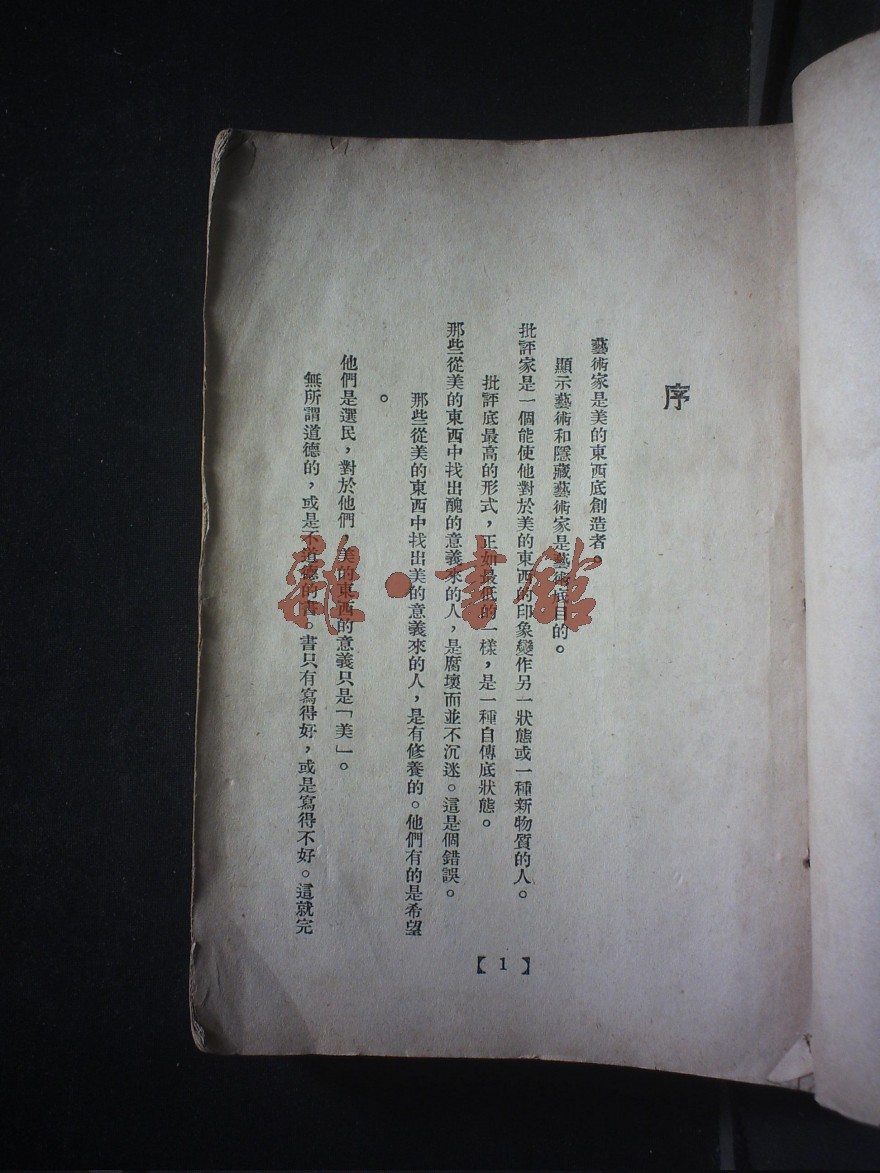 序
藝術家是美的東西底創造者。
顯示藝術和隱藏藝術家是藝術底目的。
批評家是一個能使他對於美的東西的印象變作另一狀態或一種新物質的人。
批評底最高的形式，正如最低的一樣，是一種自傳底狀態。
那些從美的東西中找出醜的意義來的人，是腐壞而並不沉迷。這是個錯誤。
那些從美的東西中找出美的意義來的人，是有修養的。他們有的是希望
。
他們是選民，對於他們，美的東西的意義只是「美」。
無所謂道德的，或是不道德的書。書只有寫得好，或是寫得不好。這就完
【1】
雜·書館